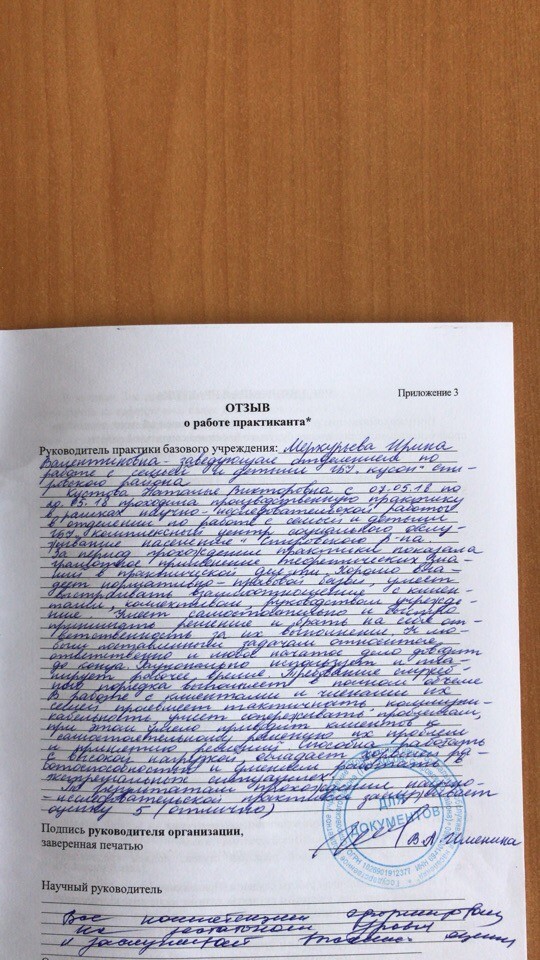 Приложение 3
ОТЗЫВ
о работе практиканта*
Руководитель практики базового учреждения: Меркурьева Ирина
Валентиновна - заведующая отделением по
работе с семьей и детьми
района
Кустова Наталья Викторовна с 07.05.18 по
05.18 проходила производственную практику
в рамках научно-исследовательской работы
в отделении по работе с семьей и детьми
центр социального обслу-
живания населения р-на.
За период прохождения практики показала
грамотное применение теоретических зна-
ний в практической деят-ти. Хорошо вла-
деет нормативно-правовой базой, умеет
выстраивать взаимоотношение с клиен-
тами, коллективом и руководством учрежде-
ние. Умеет самостоятельно и быстро
принимать решение и брать на себя от-
ветственность за их выполнение. К лю-
бым поставленным задачам относится
ответственно и любое начатое дело доводит
до конца. Рационально использует и плани-
рует рабочее время. Требование служеб-
ного порядка выполняет в полном объеме
В работе с клиентами и членами их
семей проявляет тактичность, коммуни-
кабельность, умеет сопереживать проблемам,
при этом умело приводит клиентов к
самостоятельному решению их проблем
и принятию решений. Способна работать
с высокой нагрузкой, обладает хорошей ра-
ботоспособностью и умением работать в
экстремальных ситуациях.
По результатам прохождения научно-
-исследовательской практики заслуживает
оценку 5 (отлично)
ДЛЯ
ДОКУМЕНТОВ
Подпись руководителя организации,
заверенная печатью
Научный руководитель
Все компетенции сформированы
на достаточном уровне
и заслуживает оценки